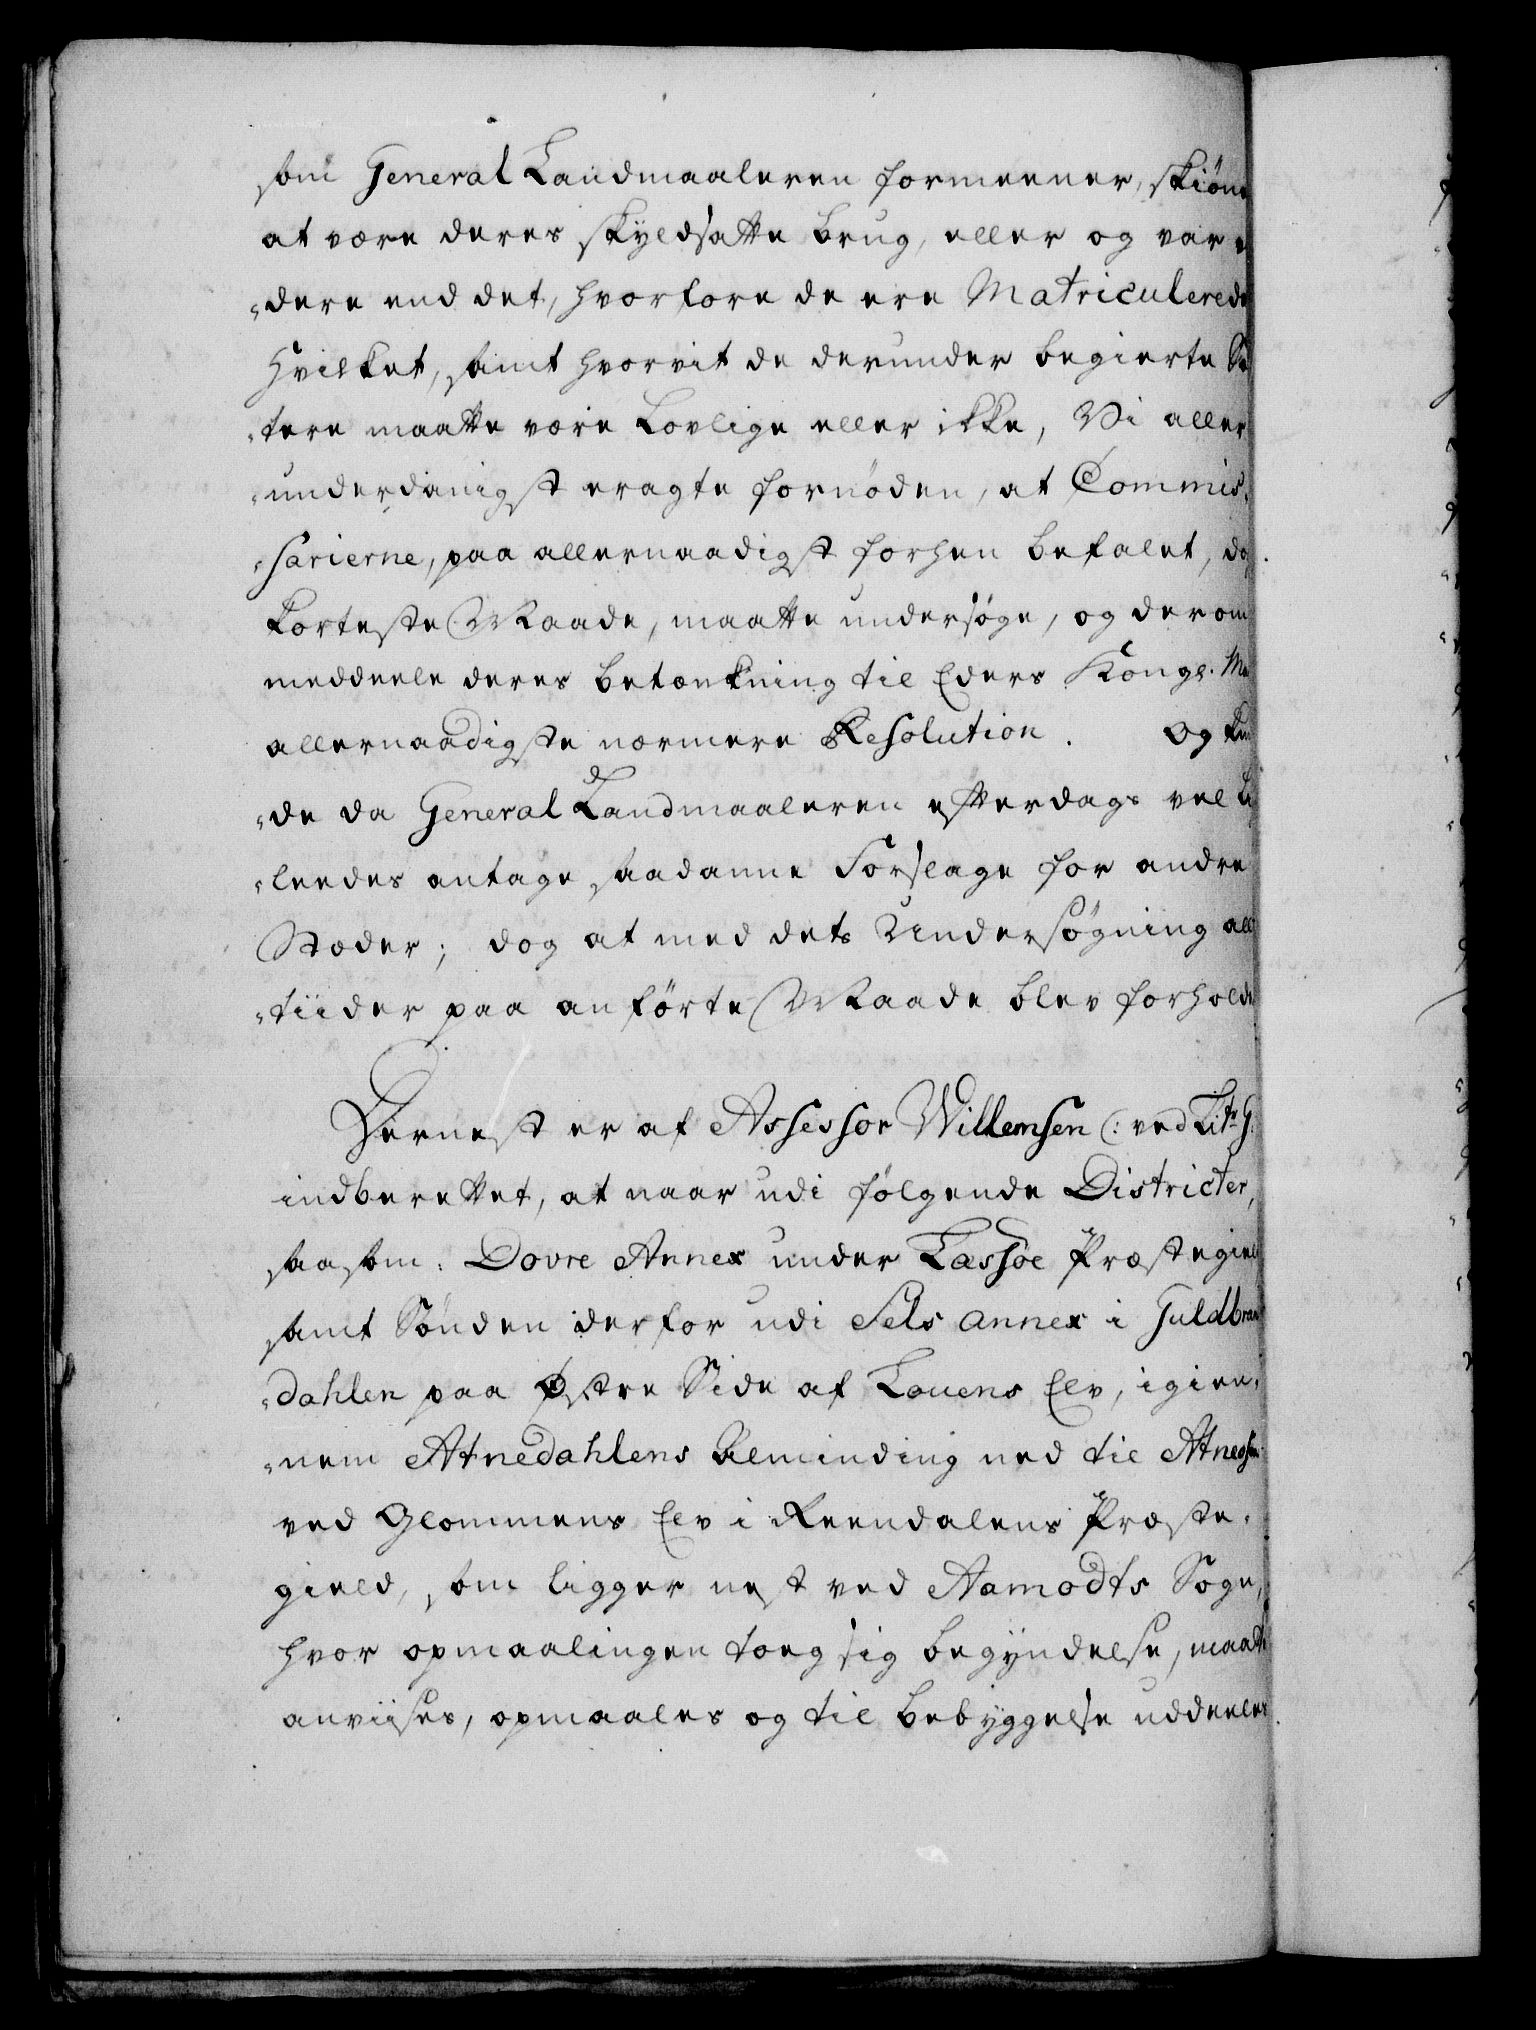 som General Landmaaleren formeener, skiøn
at være deres skyldsatte brug, eller og var
„dere end det, hvorfore de ere Matriculerede
hvilket, samt hvorvit de derunder begierte Sæ
„tere maatte være Lovlige eller ikke, Vi aller
„underdanigst eragte fornøden, at Commis„
„sarierne, paa allernaadigst forhen befalet, dog
korteste Maade, maatte undersøge, og derom
meddeele deres betænkning til Eders Kongl. Ma
allernaadigste nærmere Resolution. Og kun
„de da General Landmaaleren efterdags vel
„leedes antage saadanne Forslage for andre
Stæder; dog at med dets Undersøgning all
„tiider paa anførte Maade blev forholdt
Dernest er af Assessor Willemsen (: ved Litr. G:
indberettet, at naar udi følgende Districter,
saasom: Dovre Annex under Læssøe Præstegield
samt Sønden derfor udi Sels annex i Guldbran
„dahlen paa Østre Side af Lauens Elv, igien„
„nem Atnedahlens Alminding ned til Atneosen
ved Glommens Elv i Reendalens Præste„
gield, som ligger nest ved Aamodts Sogn,
hvor opmaalingen toeg sig begyndelse, maatte
anviises, opmaales og til bebyggelse uddeeles